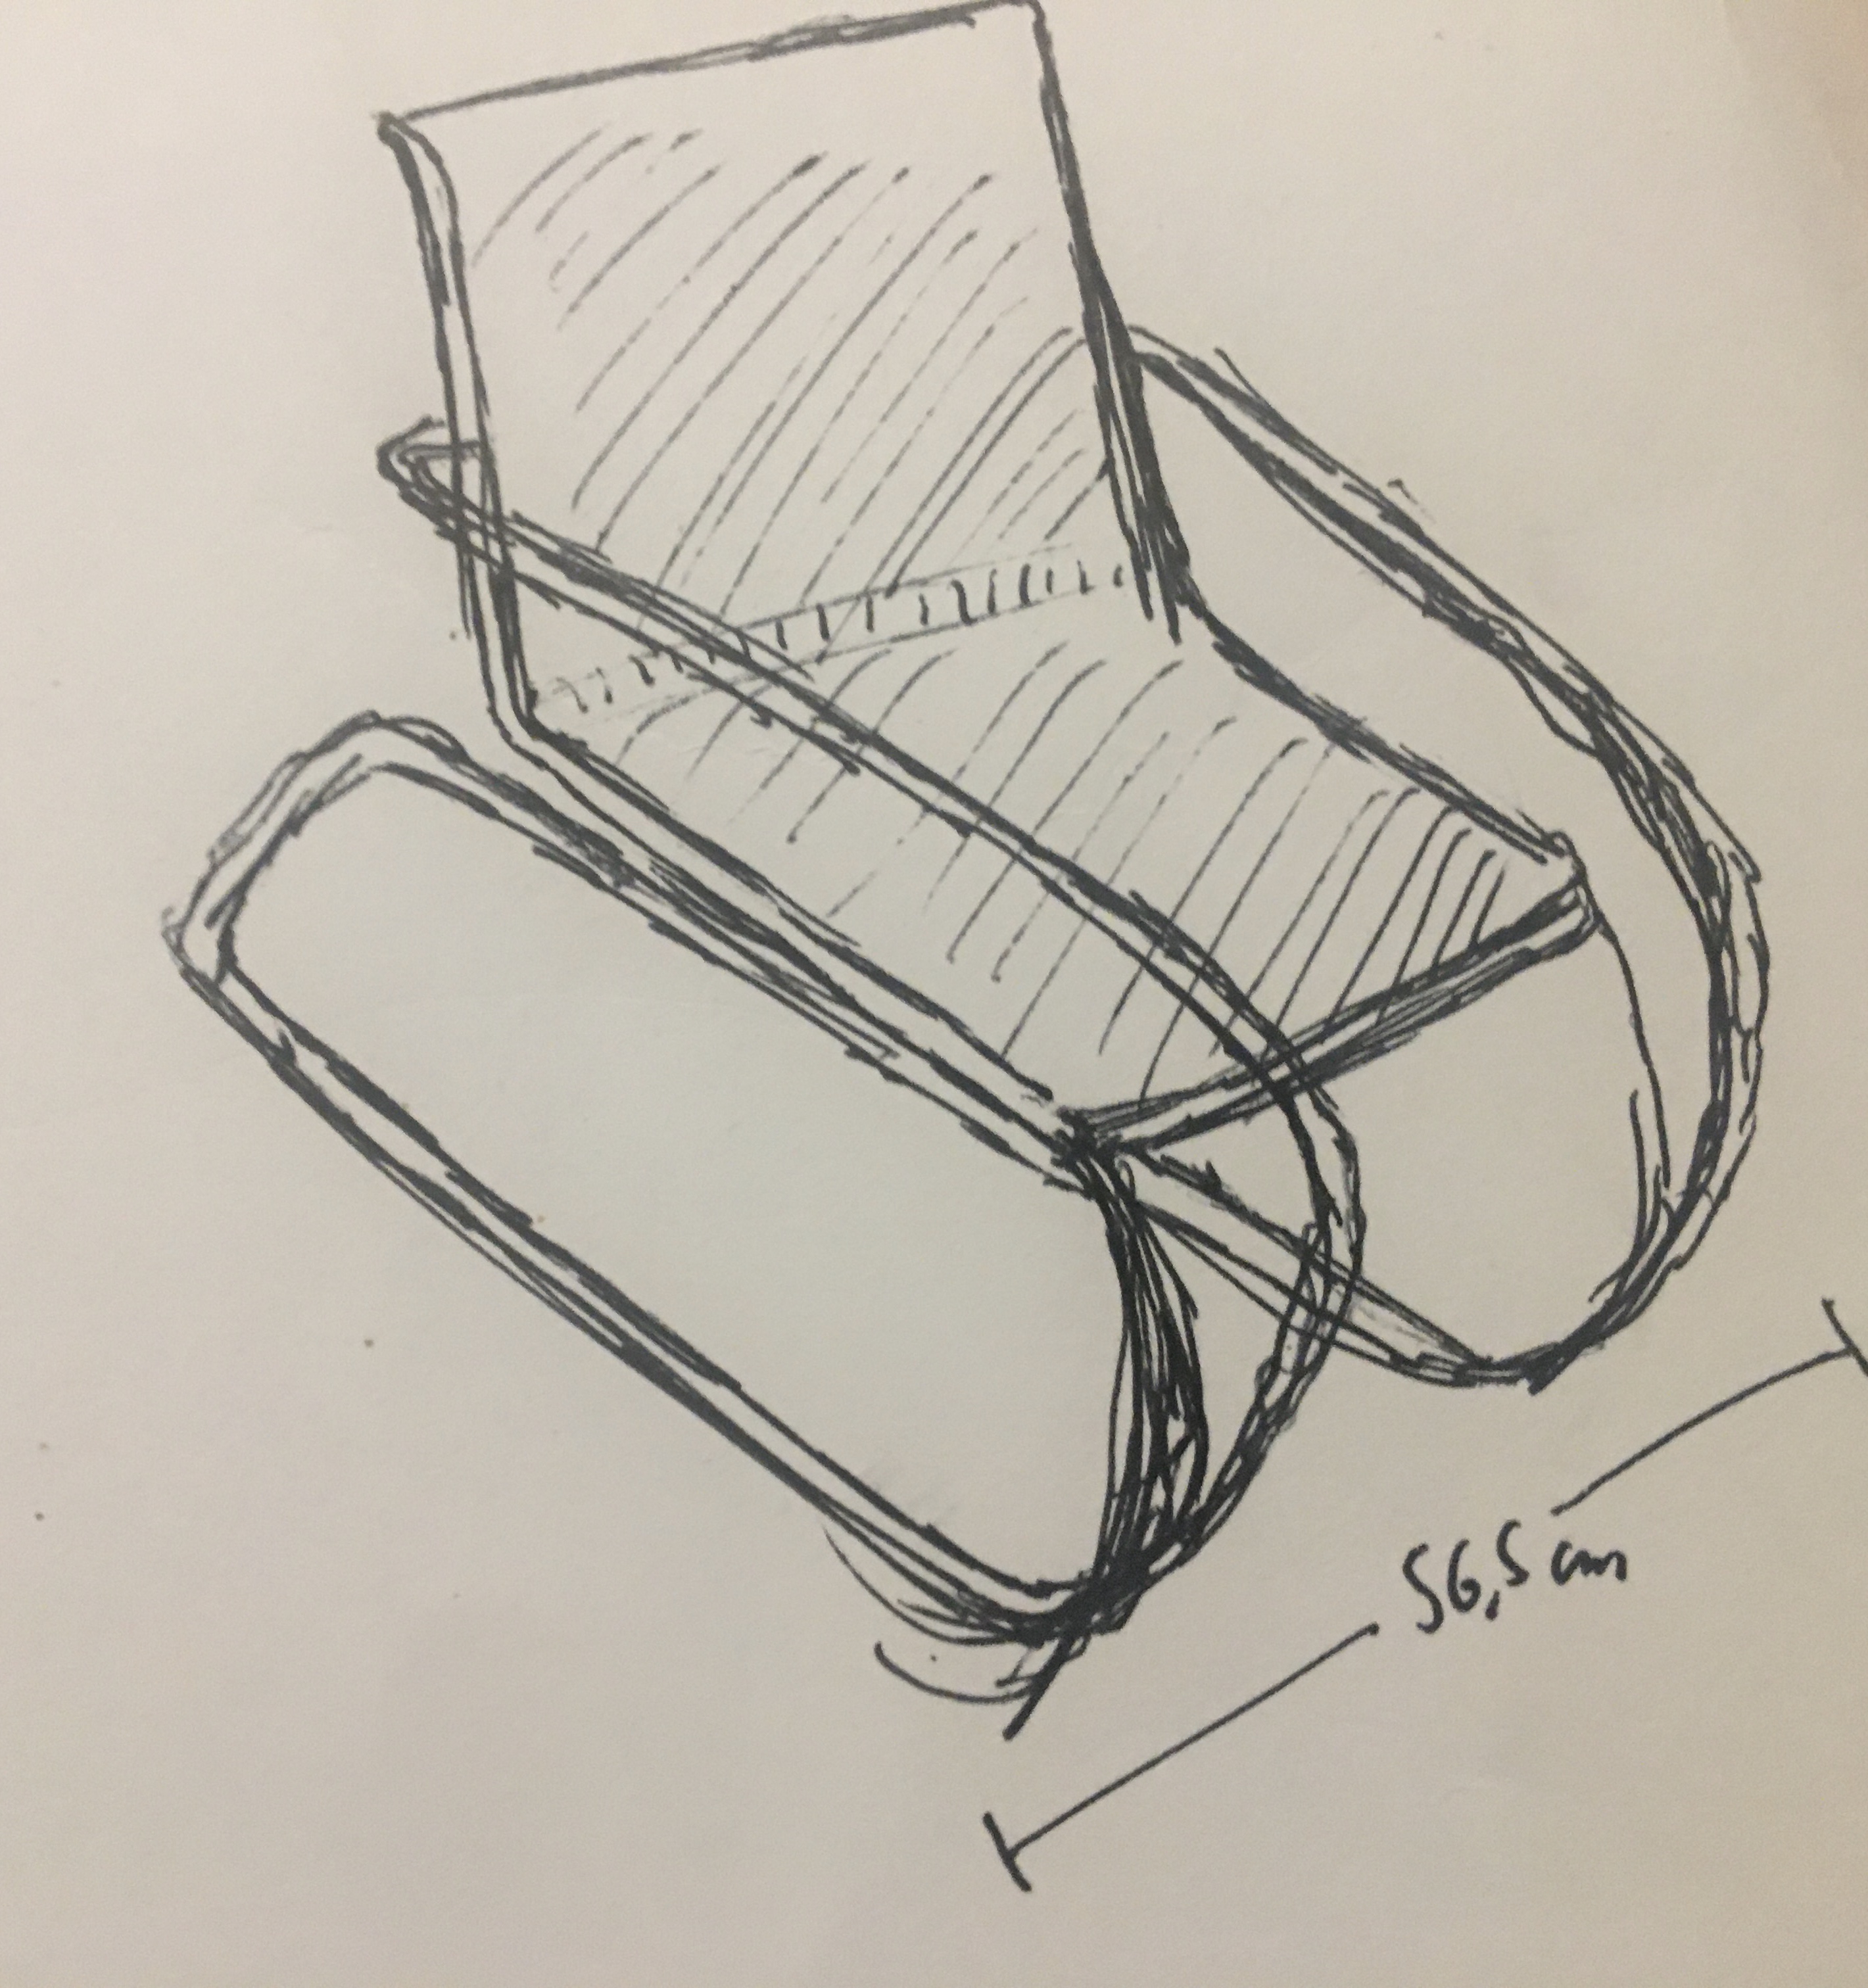 56,5 cm